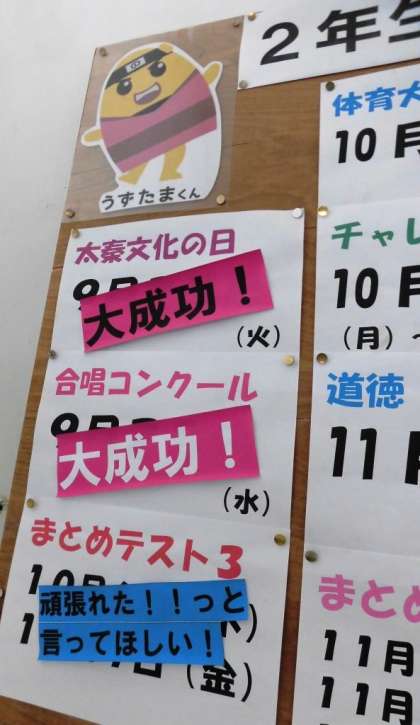 2年生
うずたまくん
太秦文化の日
9月
大成功！
（火）
合唱コンクール
9月
大成功！
（水）
まとめテスト3
10月
頑張れた！！っと
言ってほしい！
日（金）
体育大
10月
チャレ
10月
（月）
道徳
11月
まとめ
11月
11月